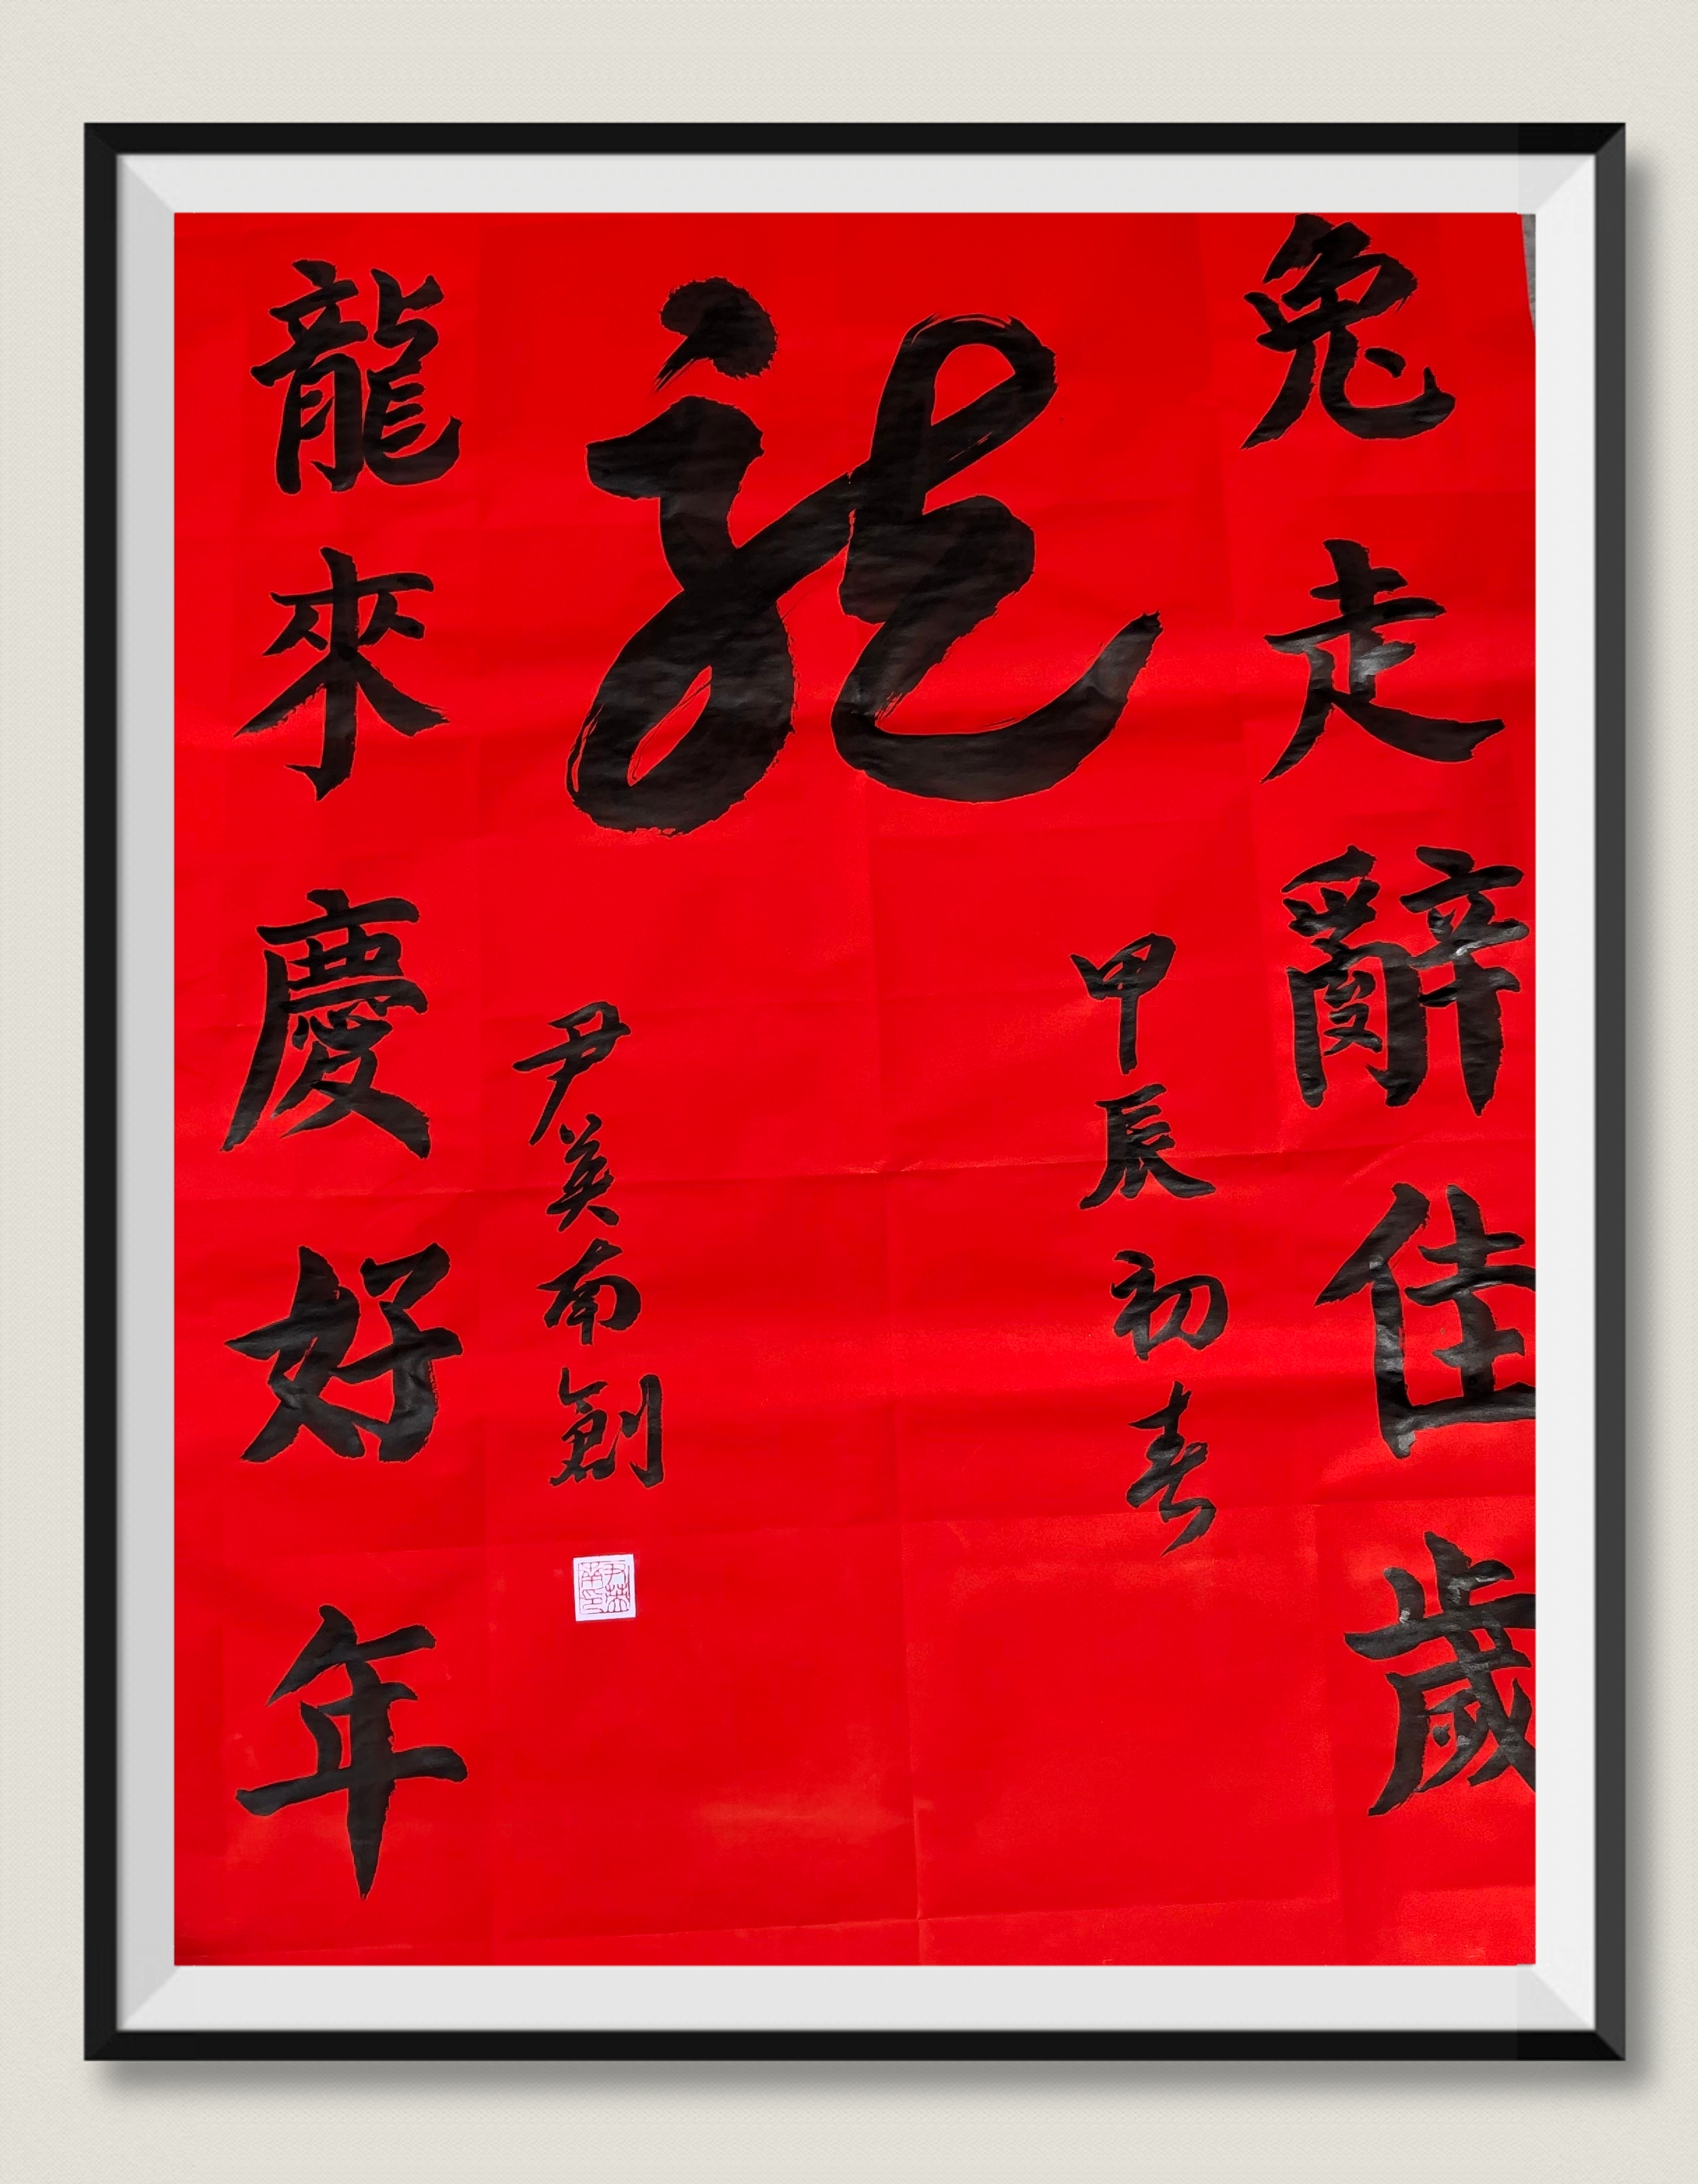 兔走辭佳歲
龍
甲辰初春
尹英南創
龍來慶好年